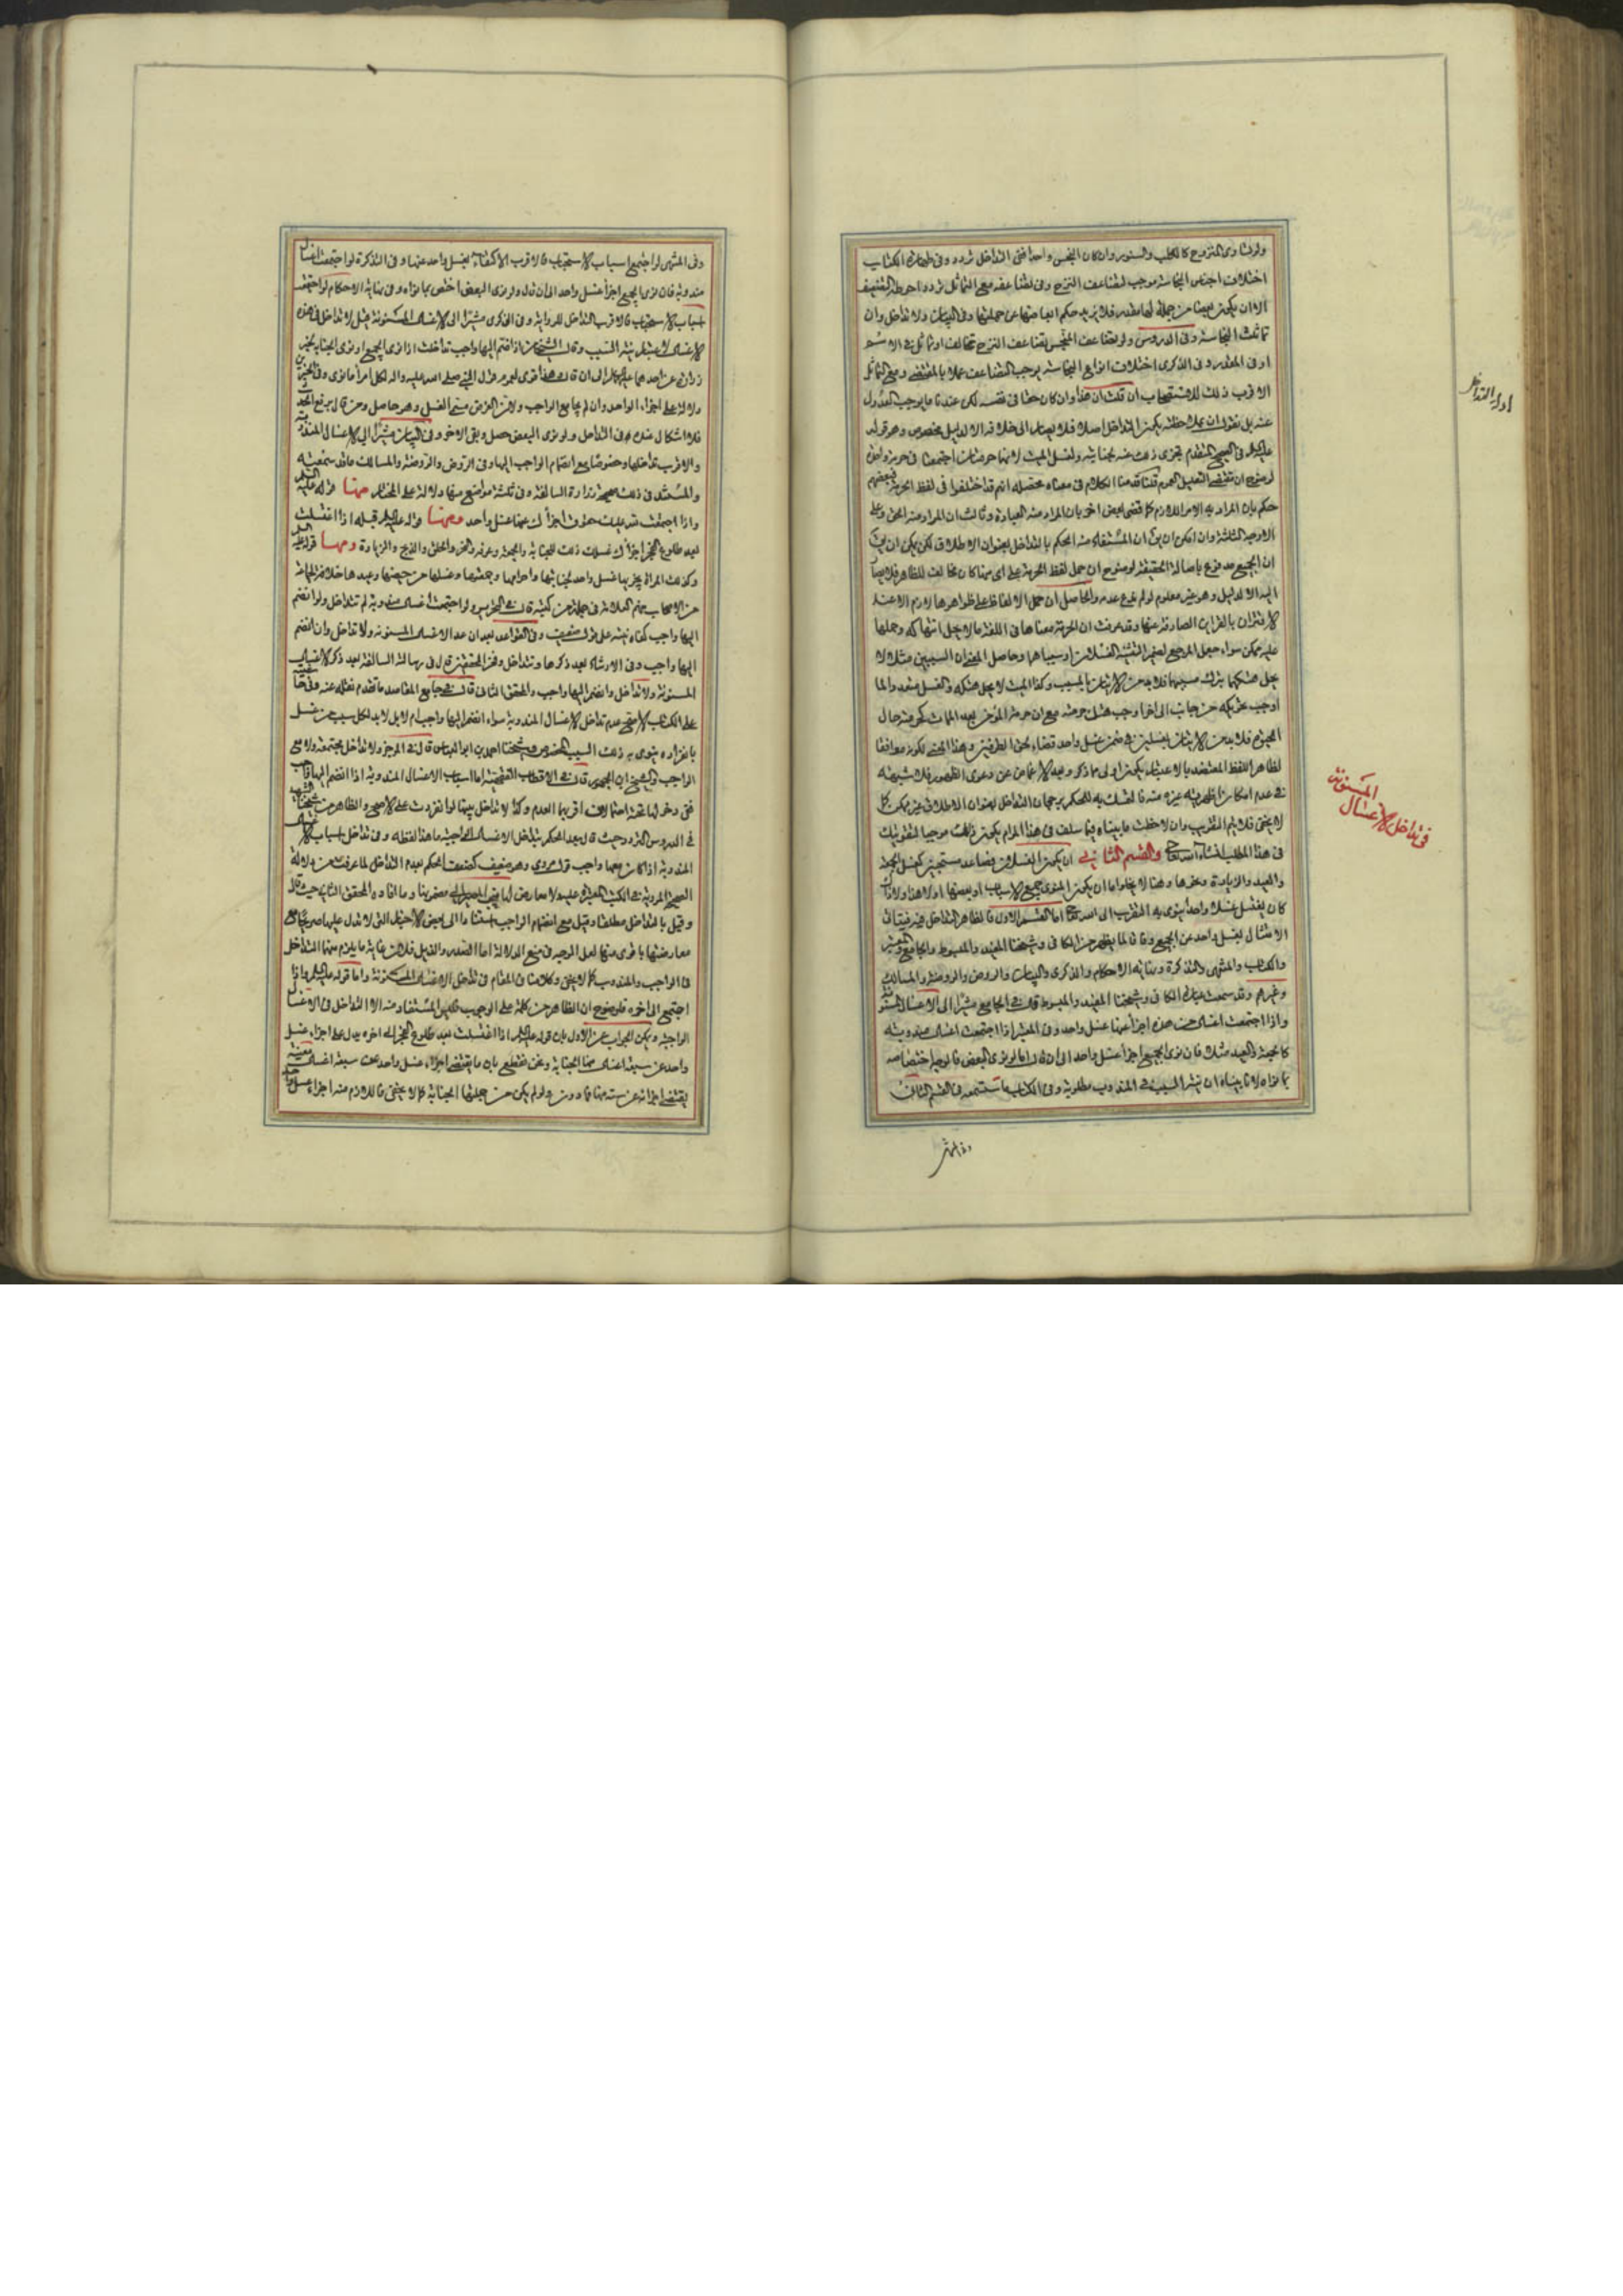 ولو تساوى النزوح كالكلب والسنور وان كان النجس واحدا ففى التداخل تردد وفى طهارة الكتاب
اختلاف اجناس النجاسة موجب لتضاعف النزح وفى تضاعفه مع التماثل تردد احوطه التضعيف
الا ان يكون بعضا من جملة لها مقدر فلا يزيد حكم ابعاضها عن جملتها وفى البيان ولا تداخل وان
تماثلت النجاسة وفى الدروس ولو تضاعف المنجس تضاعف النزح تخالف او تماثل فى الاسم
او فى المقدر وفى الذكرى اختلاف انواع النجاسة يوجب التضاعف عملا بالمقتضى ومع التماثل
الاقرب ذلك للاستصحاب ان قلت ان هذا وان كان حقا فى نفسه لكن عندنا ما يوجب العدول
عنه بل نقول ان بملاحظته يكون التداخل اصلا فلا يصار الى خلافه الا لدليل مخصوص وهو قوله
عليه السلام فى الصحيح المتقدم يجزى ذلك عنه لجنابته ولغسل الميت لانهما حرمتان اجتمعتا فى حرمة واحدة
لوضوح ان مقتضى التعليل العموم قلنا قدمنا الكلام فى معناه محصله انهم قد اختلفوا فى لفظ الحرمة فبعضهم
حكم بان المراد به الامر اللازم كما قضى بعض اخر بان المراد منه العبادة وثالث ان المراد منه الحق وعلى
الاوجه الثلثة وان امكن ان يق ان المستفاد منه الحكم بالتداخل بعنوان الاطلاق لكن يمكن ان يق
ان الجميع مدفوع باصالة الحقيقة لوضوح ان حمل لفظ الحرمة على اى منها كان مخالف للظاهر فلا يصار
اليه الا لدليل وهو غير معلوم لو لم ندع عدمه والحاصل ان حمل الالفاظ على ظواهرها لازم الا عند
الاقتران بالقراين الصارفة عنها وقد عرفت ان الحرمة معناها فى اللغة ما لا يحل انتهاكه وحملها
عليه ممكن سواء جعل المرجع لضمير التثنية الغسلان او سبباهما وحاصل المعنى ان السببين مثلا لا
يحل هتكهما بترك مسببهما فلا بد من الاتيان بالمسبب وكذا الميت لا يحل هتكه والغسل متعدد وانما
المحترم فلا بد من الاتيان بغسلين فى ضمن غسل واحد قضاء لحق الطرفين وهذا المعنى لكونه موافقا
لظاهر اللفظ المعتضد بالاعتبار يكون اولى مما ذكر وبعد الاغماض عن دعوى الظهور فلا شبهة
فى عدم امكان اظهرية غيره منه فالتمسك به للحكم برجحان التداخل بعنوان الاطلاق غير ممكن كما
لا يخفى فلا يتم التقريب وان لاحظت ما بيناه فيما سلف فى هذا المرام يكون ذلك موجبا لتقويتك
فى هذا المطلب انشاء الله تعالى والقسم الثانى ان يكون الغسلان فصاعدا مستحبين كغسل الجمعة
والعيد والزيارة ونحوها وهنا لا يخلو اما ان يكون المنوى جميع الاسباب او بعضها او لا هذا ولا ذاك
كان يغتسل غسلا واحدا ينوى به التقرب الى الله تعالى اما القسم الاول فالظاهر التداخل فيه فيتاتى
الامتثال بغسل واحد عن الجميع وفاقا لما يظهر من الكافى وشيخنا المفيد والمبسوط والجامع والمعتبر
والكتاب والمنتهى والتذكرة ونهاية الاحكام والذكرى والبيان والروض والروضة والمسالك
وغيرهم وقد سمعت عبارة الكافى وشيخنا المفيد والمبسوط قال فى الجامع مشيرا الى الاغسال المسنونة
واذا اجتمعت اغسال من هذه اجزأ عنها غسل واحد وفى المعتبر اذا اجتمعت اغسال مندوبة
كالجمعة والعيد مثلا فان نوى الجميع اجزأ غسل واحد الى ان قال اما لو نوى البعض فالوجه اختصاصه
بما نواه لانا بيناه ان نية السبب فى المندوب مطلوبة وفى الكتاب ما ستسمعه فى القسم الثالث
وفى المنتهى
فى تداخل الاغسال المسنونة
وفى المنتهى لو اجتمع اسباب الاستحباب فالاقرب الاكتفاء بغسل واحد عنها وفى التذكرة لو اجتمعت اغسال
مندوبة فان نوى الجميع اجزأ غسل واحد الى ان قال ولو نوى البعض اختص بما نواه وفى نهاية الاحكام لو اجتمعت
اسباب الاستحباب فالاقرب التداخل للرواية وفى الذكرى مشيرا الى الاغسال المسنونة قبل لا تداخل فى هذه
الاغسال لاعتبار نية السبب وقال الشيخان اذا انضم اليها واجب تداخلت اذا نوى الجميع او نوى الجنابة لخبر
زرارة عن احدهما عليهما السلام الى ان قال هذا قوى لعموم قول النبى صلى الله عليه واله لكل امرأ ما نوى وفى الخبرين
دلالة على اجزاء الواحد وان لم يجامع الواجب ولان الغرض مسمى الغسل وهو حاصل ومن قال برفع الحدث
فلا اشكال عنده فى التداخل ولو نوى البعض حصل وبقى الاخر وفى البيان مشيرا الى الاغسال المندوبة
والاقرب تداخلها وخصوصا مع انضمام الواجب اليها وفى الروض والروضة والمسالك ما قد سمعته
والمستند فى ذلك صحيحة زرارة السالفة وفى ثلثة مواضع منها دلالة على المختار منها قوله عليه السلام
واذا اجتمعت لله عليك حقوق اجزأك عنها غسل واحد ومنها قوله عليه السلام قبله اذا اغتسلت
بعد طلوع الفجر اجزأك غسلك ذلك للجنابة والجمعة وعرفة والنحر والحلق والذبح والزيارة ومنها قوله عليه السلام
وكذلك المرأة يجزيها غسل واحد لجنابتها واحرامها وجمعتها وغسلها من حيضها وعيدها خلافا لجماعة
من الاصحاب منهم العلامة فى جملة من كتبه قال فى التحرير ولو اجتمعت اغسال مندوبة لم تتداخل ولو انضم
اليها واجب كفاه نيته على قول ضعيف وفى القواعد بعد ان عد الاغسال المسنونة ولا تداخل وان انضم
اليها واجب وفى الارشاد بعد ذكرها وتتداخل وفخر المحققين قال فى رسالته السالفة بعد ذكر الاغسال
المسنونة ولا تداخل وانضم اليها واجب والمحقق الثانى قال فى جامع المقاصد ما تقدم نقله عنه وفى حاشيته
على الكتاب الاصح عدم تداخل الاغسال المندوبة سواء انضم اليها واجب ام لا بل لا بد لكل سبب من غسل
بانفراده ينوى به ذلك السبب المخصوص وشيخنا احمد بن ابو العباس قال فى الموجز ولا تداخل مجتمعة ولا مع
الواجب والشيخ ابن الجمهور قال فى الاقطاب الفقهية اما اسباب الاغسال المندوبة اذا انضم اليها واجب
ففى دخولها تحته احتمالات اقربها العدم وكذا لا تداخل بينها لو انفردت على الاصح والظاهر من شيخنا الشهيد
فى الدروس التردد حيث قال بعد الحكم بتداخل الاغسال الواجبة ما هذا لفظه وفى تداخل اسباب الاغسال
المندوبة اذا كان معها واجب قول مروى وهو ضعيف كضعف الحكم بعدم التداخل لما عرفت من دلالة
وقيل بالتداخل مطلقا وقيل مع انضمام الواجب استنادا الى بعض الاخبار التى لا تدل عليها صريحا مع
معارضتها باقوى منها لعل الوجه فى منع الدلالة اما الصدر والذيل فلان غاية ما يلزم منهما التداخل
فى الواجب والمندوب كما لا يخفى وكلامنا فى المقام فى تداخل الاغسال المسنونة واما قوله عليه السلام واذا
اجتمع الى اخره فلوضوح ان الظاهر من كلمة على الوجوب فليس المستفاد منه الا التداخل فى الاغسال
الواجبة ويمكن الجواب عن الاول بان قوله عليه السلام اذا اغتسلت بعد طلوع الفجر الى اخره يدل على اجزاء غسل
واحد عن سبعة اغسال منها الجنابة ونحن نقطع بان ما يقتضى اجزاء غسل واحد عن سبعة اغسال معينة
يقتضى اجزائه عن ستة منها فما دون ولو لم يكن من جملتها الجنابة كما لا يخفى فاللازم منه اجزاء غسل واحد